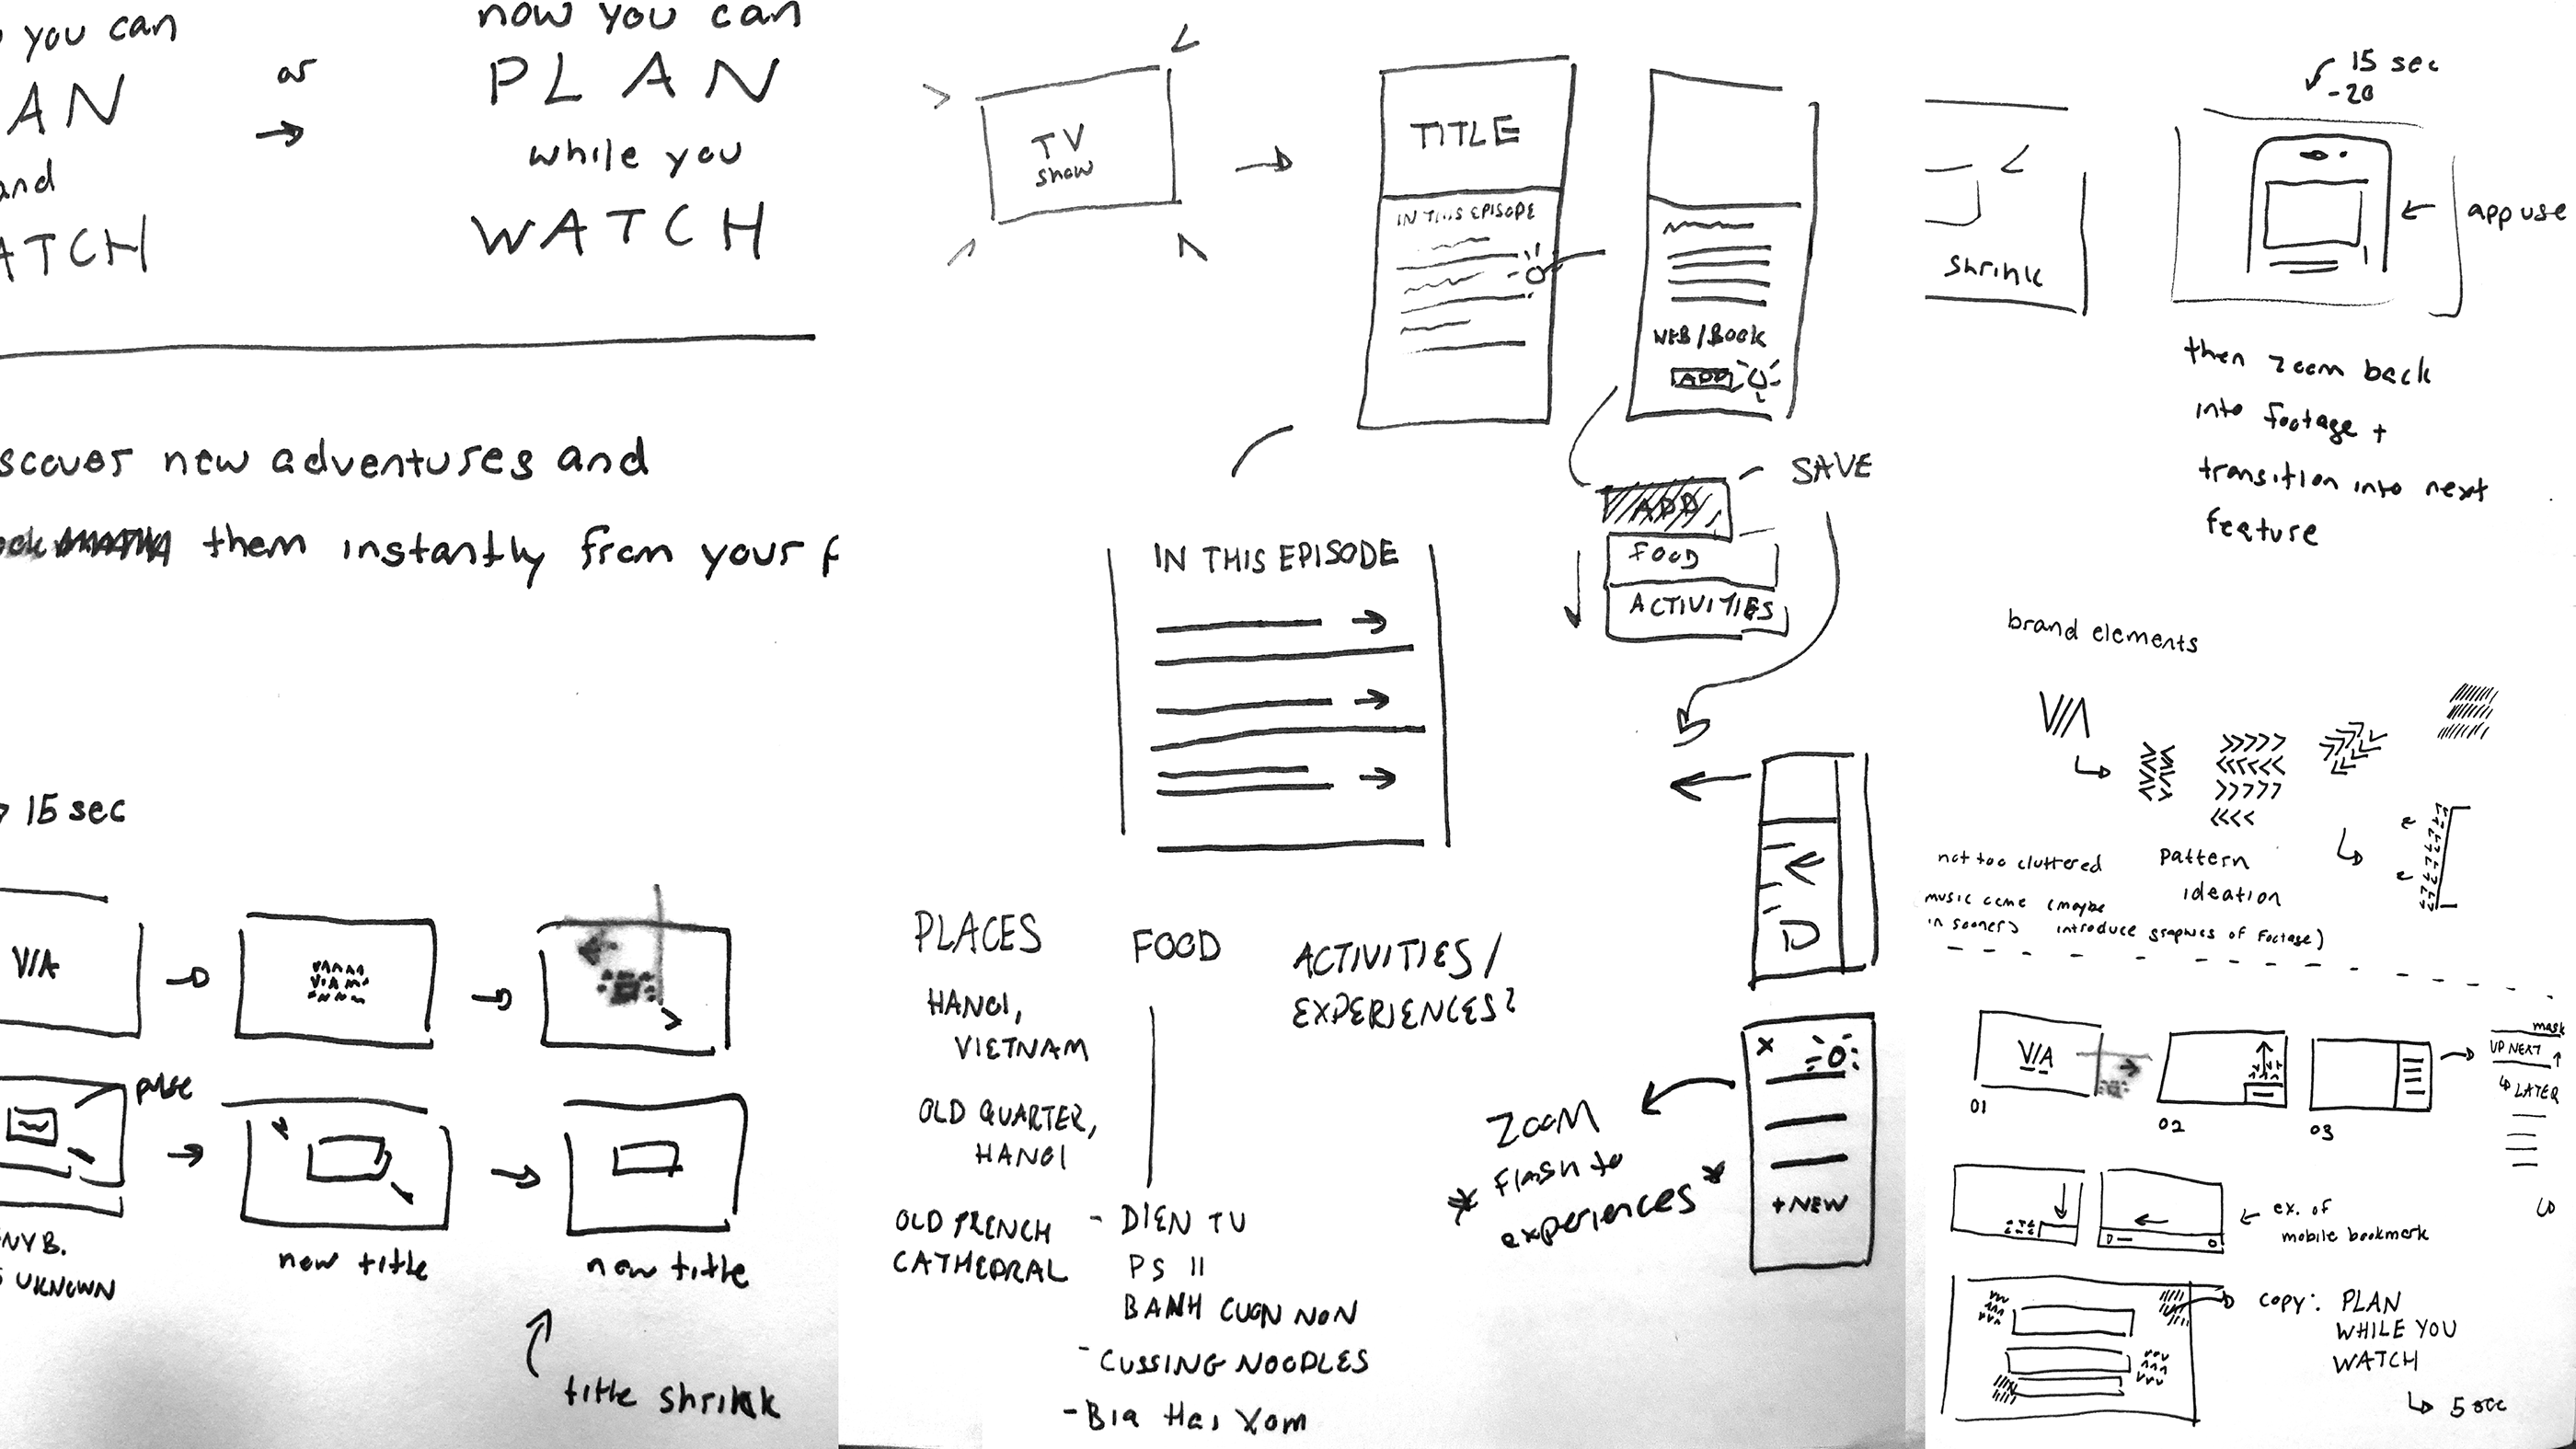 you can
AN
and
ATCH
or
now you can
PLAN
while you
WATCH
scover new adventures and
them instantly from your f
15 sec
V/A
pulse
NYB.
UKNOWN
new title
new title
title shrink
TV
show
TITLE
IN THIS EPISODE
WEB/BOOK
ADD
SAVE
ADD
FOOD
ACTIVITIES
IN THIS EPISODE
PLACES
HANOI,
VIETNAM
OLD QUARTER,
HANOI
OLD FRENCH
CATHEDRAL
FOOD
- DIEN TU
PS II
BANH CUON NON
- CUSSING NOODLES
- Bia Hai Xom
ACTIVITIES/
EXPERIENCES?
ZOOM
flash to
* experiences *
X
+NEW
shrink
15 sec
-20
app use
then zoom back
into footage +
transition into next
feature
brand elements
V//\
>>>>>
<<<<<<
>>>>>
<<<<
not too cluttered
pattern
ideation
music (maybe
in sooner) introduce graphics of footage)
V/A
01
02
03
mask
UP NEXT
LATER
ex. of
mobile bookmark
copy: PLAN
WHILE YOU
WATCH
5 sec